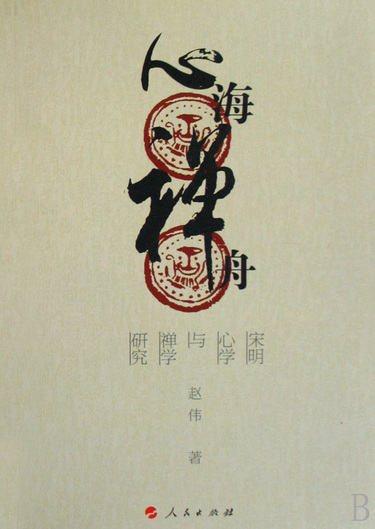 心海禅舟
宋明
心学
与
禅学
研究
赵伟 著
人民出版社
B